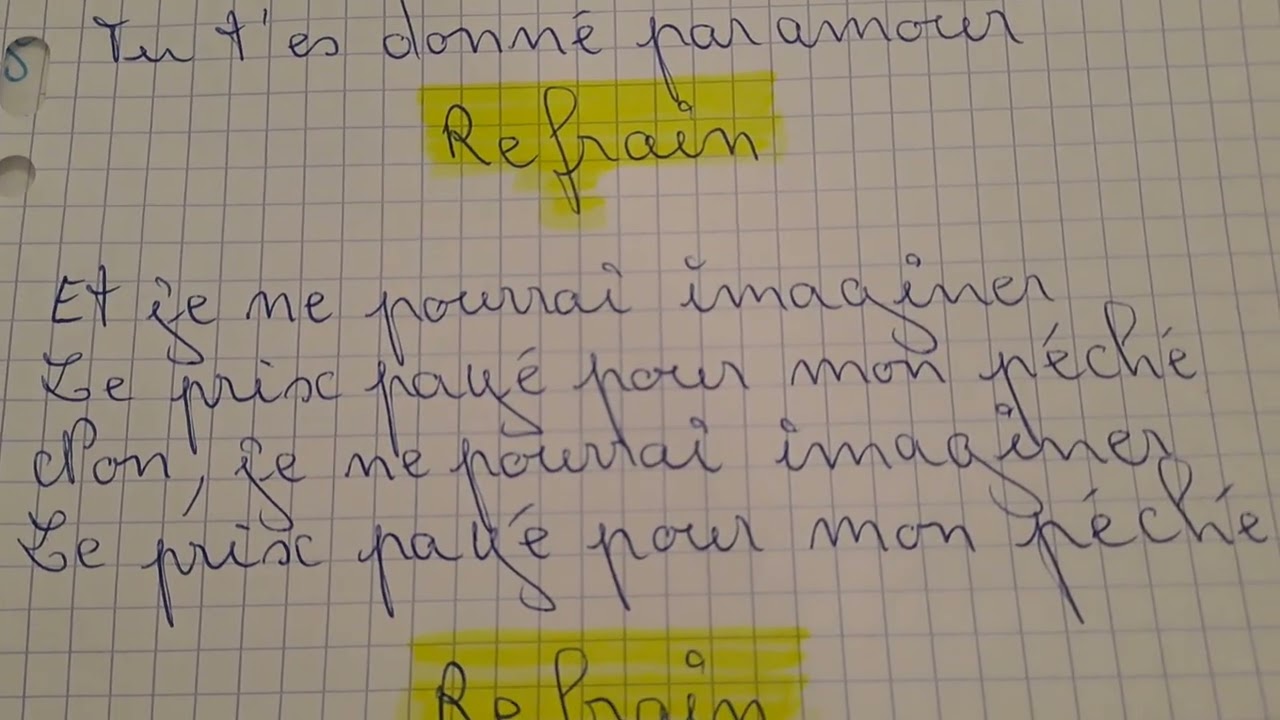 Tu t'es donné par amour
Refrain
Et je ne pourrai imaginer
Le prix payé pour mon péché
Non, je ne pourrai imaginer
Le prix payé pour mon péché
Refrain